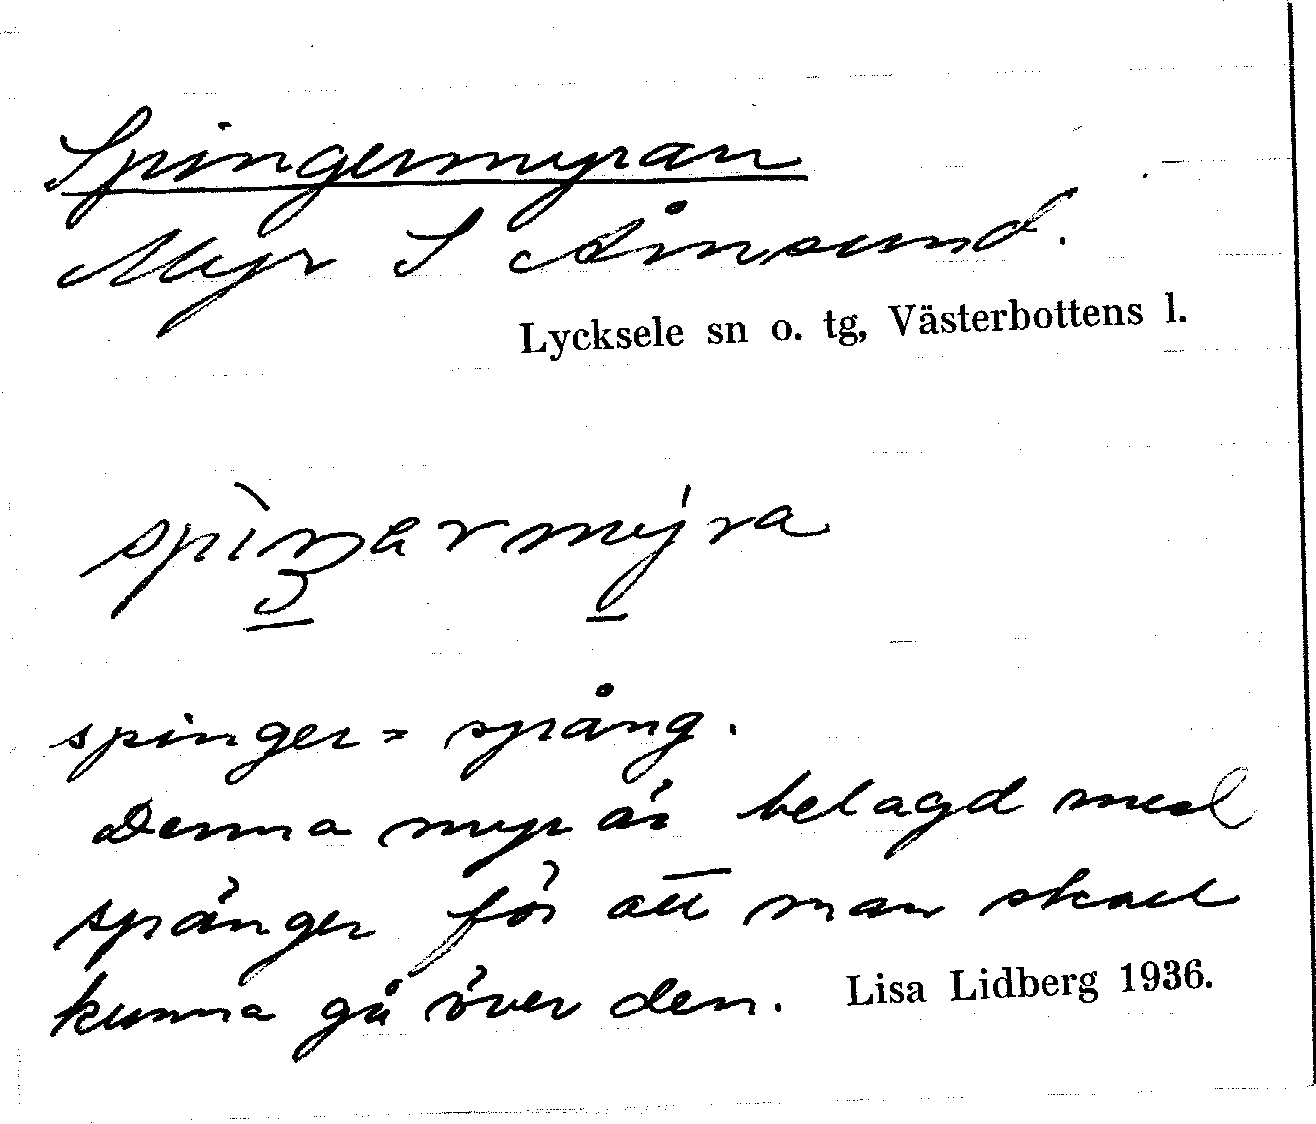 Spingermyran
Myr S Åmsund.
Lycksele sn o. tg, Västerbottens l.
spinger = spång.
Denna myr är belagd med
spänger för att man skall
kunna gå över den. Lisa Lidberg 1936.